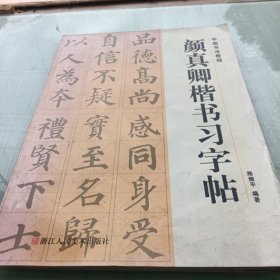 中国书法教程
颜真卿楷书习字帖
陈德平 编著
品德高尚感同身受
自信不疑實至名歸
以人為本禮賢下士
浙江人民美术出版社